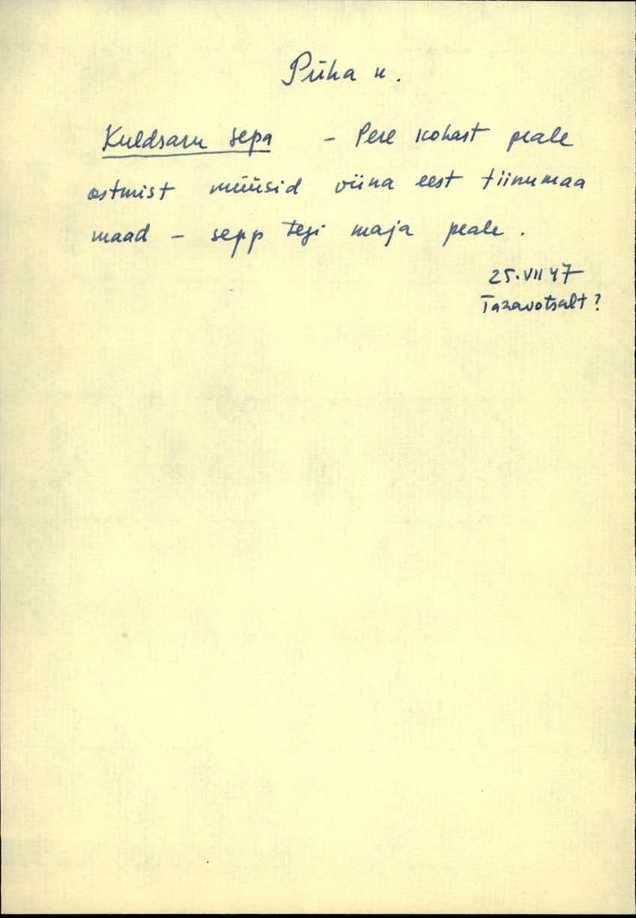 Püha n.
Kuldsaru sepa – Pere kohast peale
ostmist müüsid viina eest tiinumaa
maad – sepp tegi maja peale.
25.VII 47
Tazavotsalt?